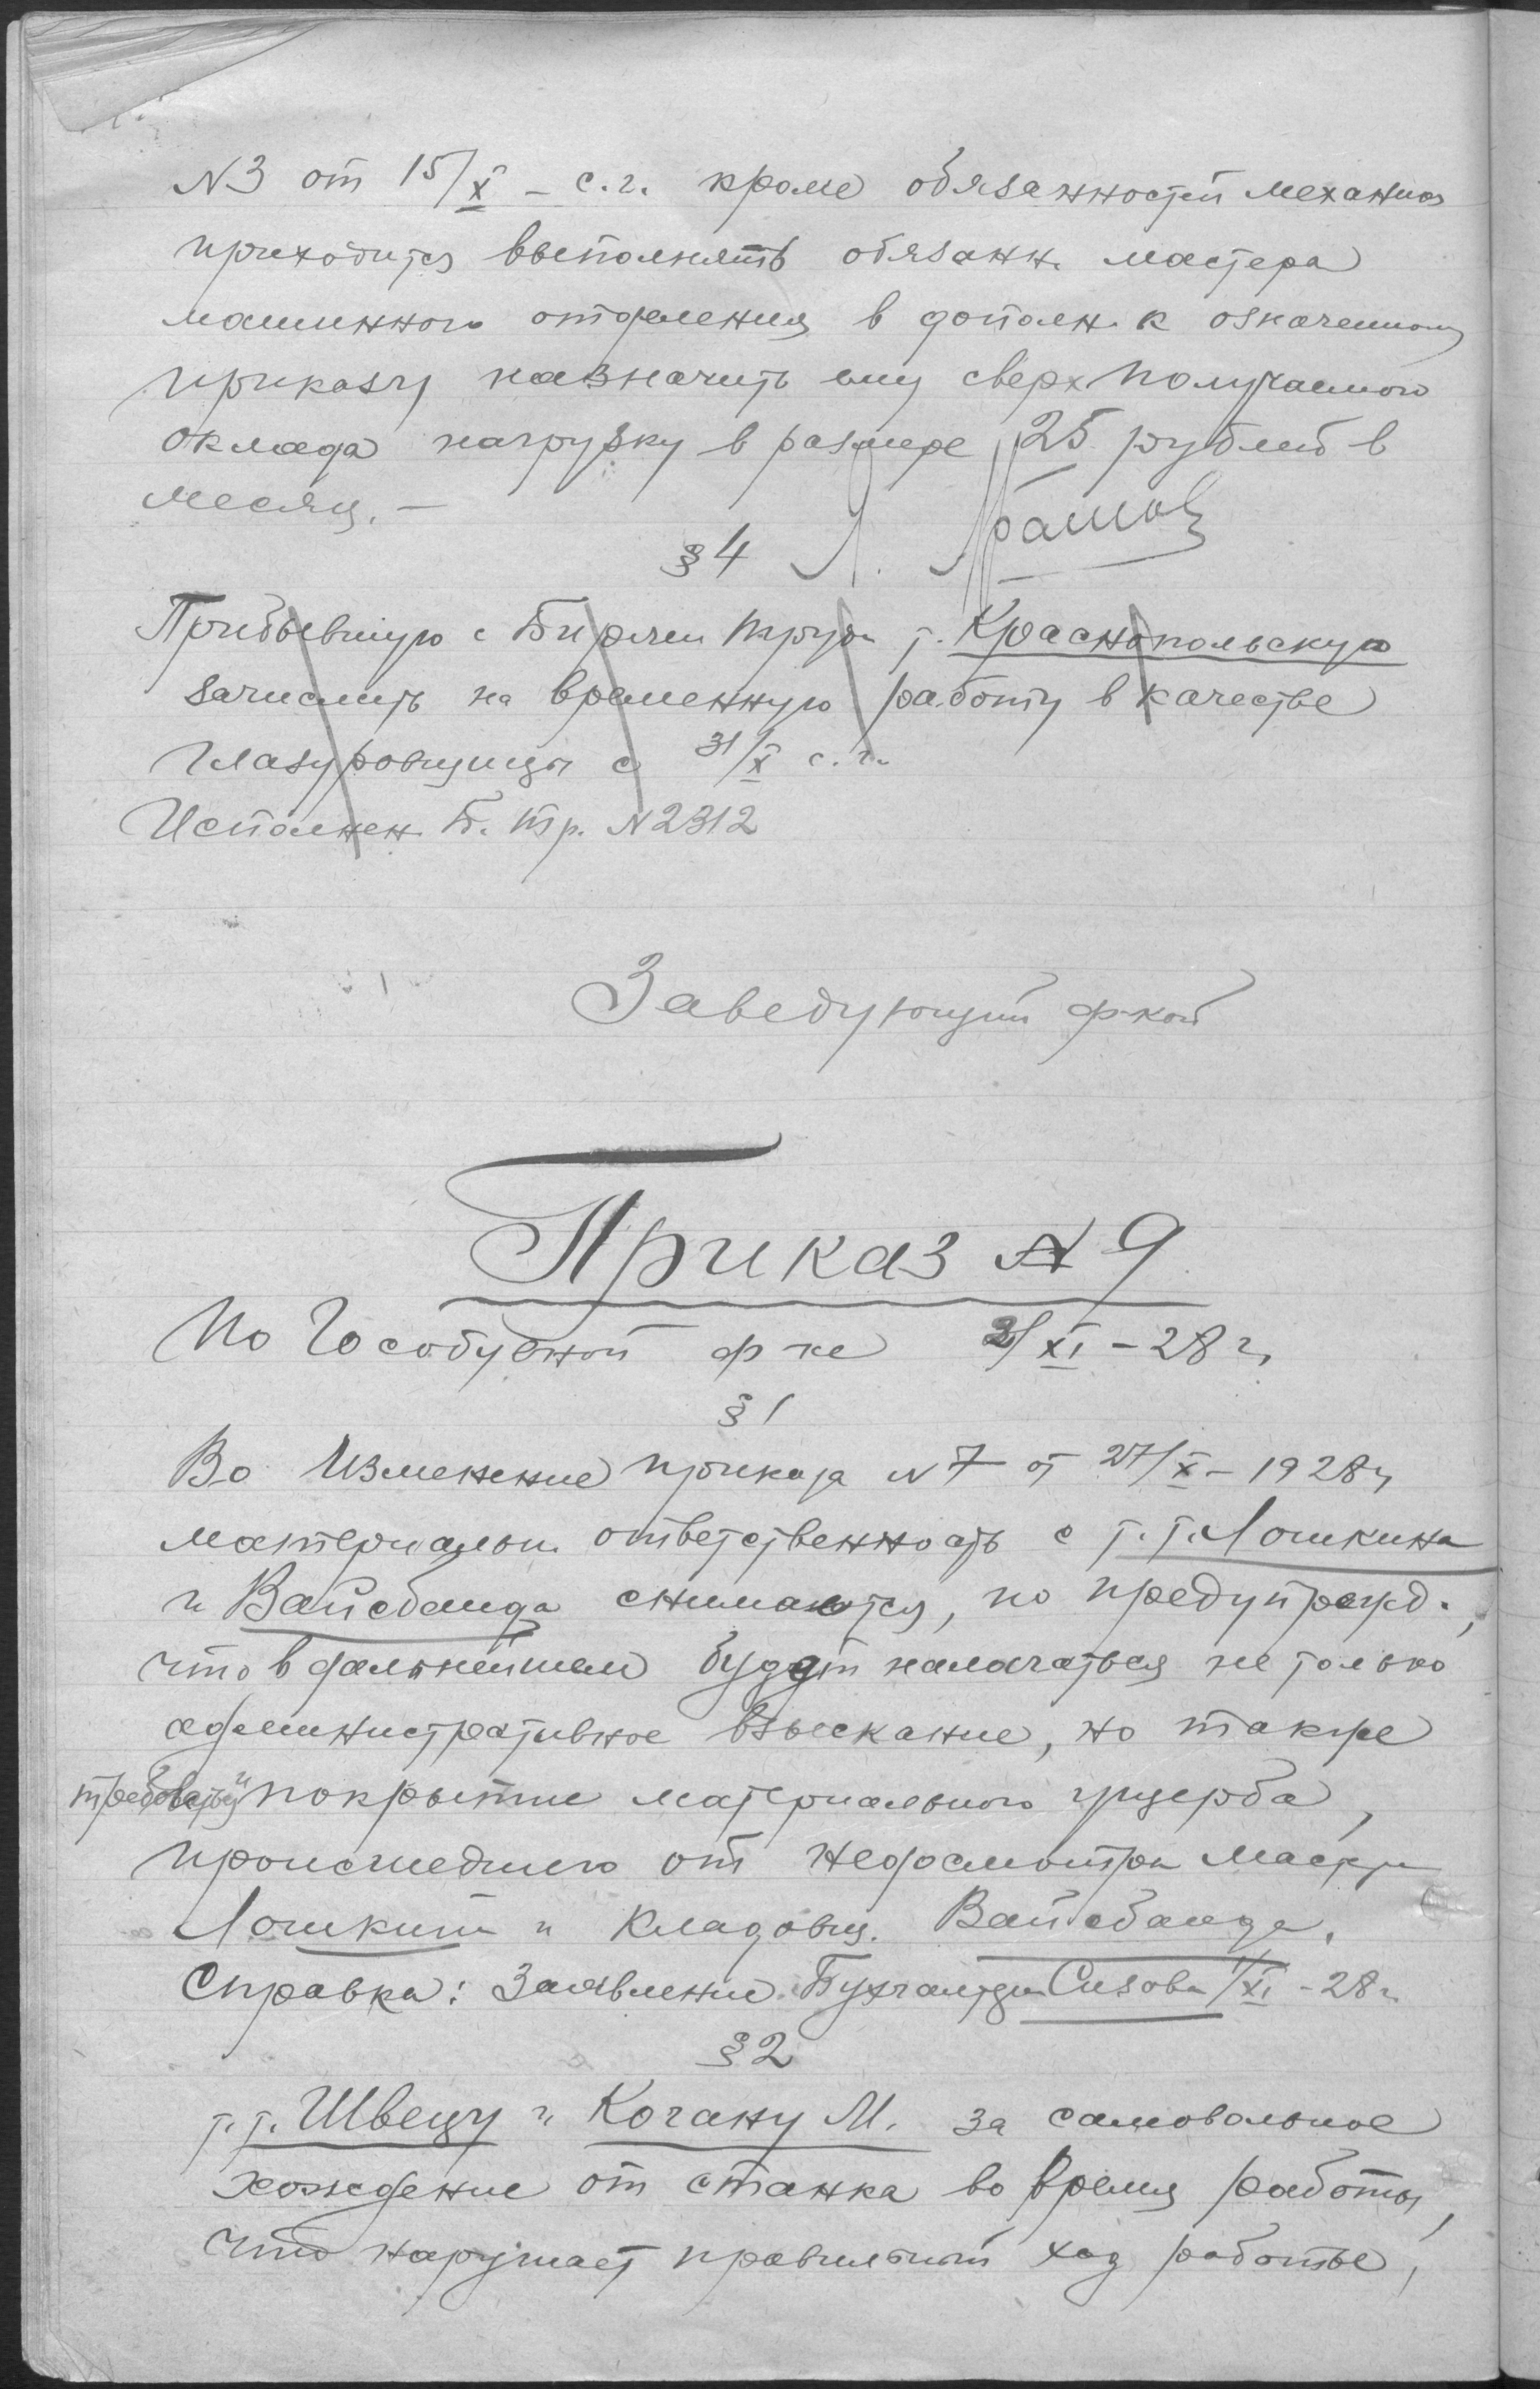 N3 от 15/X – с.г. кроме обязанностей механика
приходится выполнять обязанн. мастера
машинного отделения в дополн. к означенному
приказу назначить ему сверх получаемого
оклада нагрузку в размере 25 рублей в
месяц. –
§ 4
Прибывшую с Биржи труда т. Краснопольскую
зачислить на временную работу в качестве
глазуровщицы с 31/X с.г.
Исполнен. Б. Тр. N 2312
Заведующий ф-кой
Приказ N 9
По Гособувной ф-ке 2/XI – 28 г.
§ 1
Во изменение приказа N 7 от 27/X – 1928 г.
материальн. ответственность с т.т. Лошкина
и Вайсбанда снимается, но предупрежд.,
что в дальнейшем будет налагаться не только
административное взыскание, но также
и покрытие материального ущерба,
происшедшего от недосмотра мастера
Лошкин и кладовщ. Вайсбанда.
Справка: Заявление Бухгалтера Сизова 1/XI – 28 г.
§ 2
т.т. Швецу и Когану М. за самовольное
хождение от станка во время работы,
что нарушает правильный ход работы,